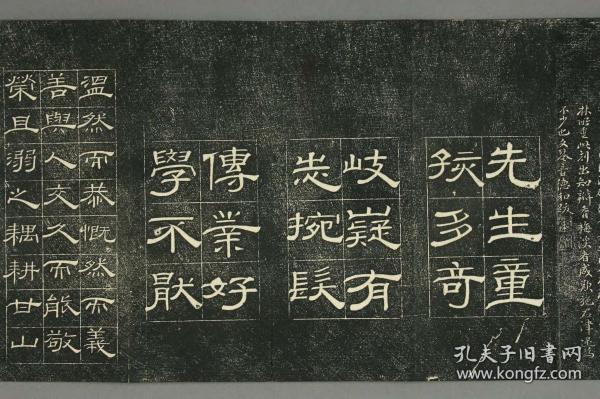 先生童
孩多奇
岐嶷有
志捥髮
傳業好
學不猒
溫然而恭慨然而義
善與人交久而能敬
榮且溺之耦耕甘山
孔夫子旧书网
www.kongfz.com